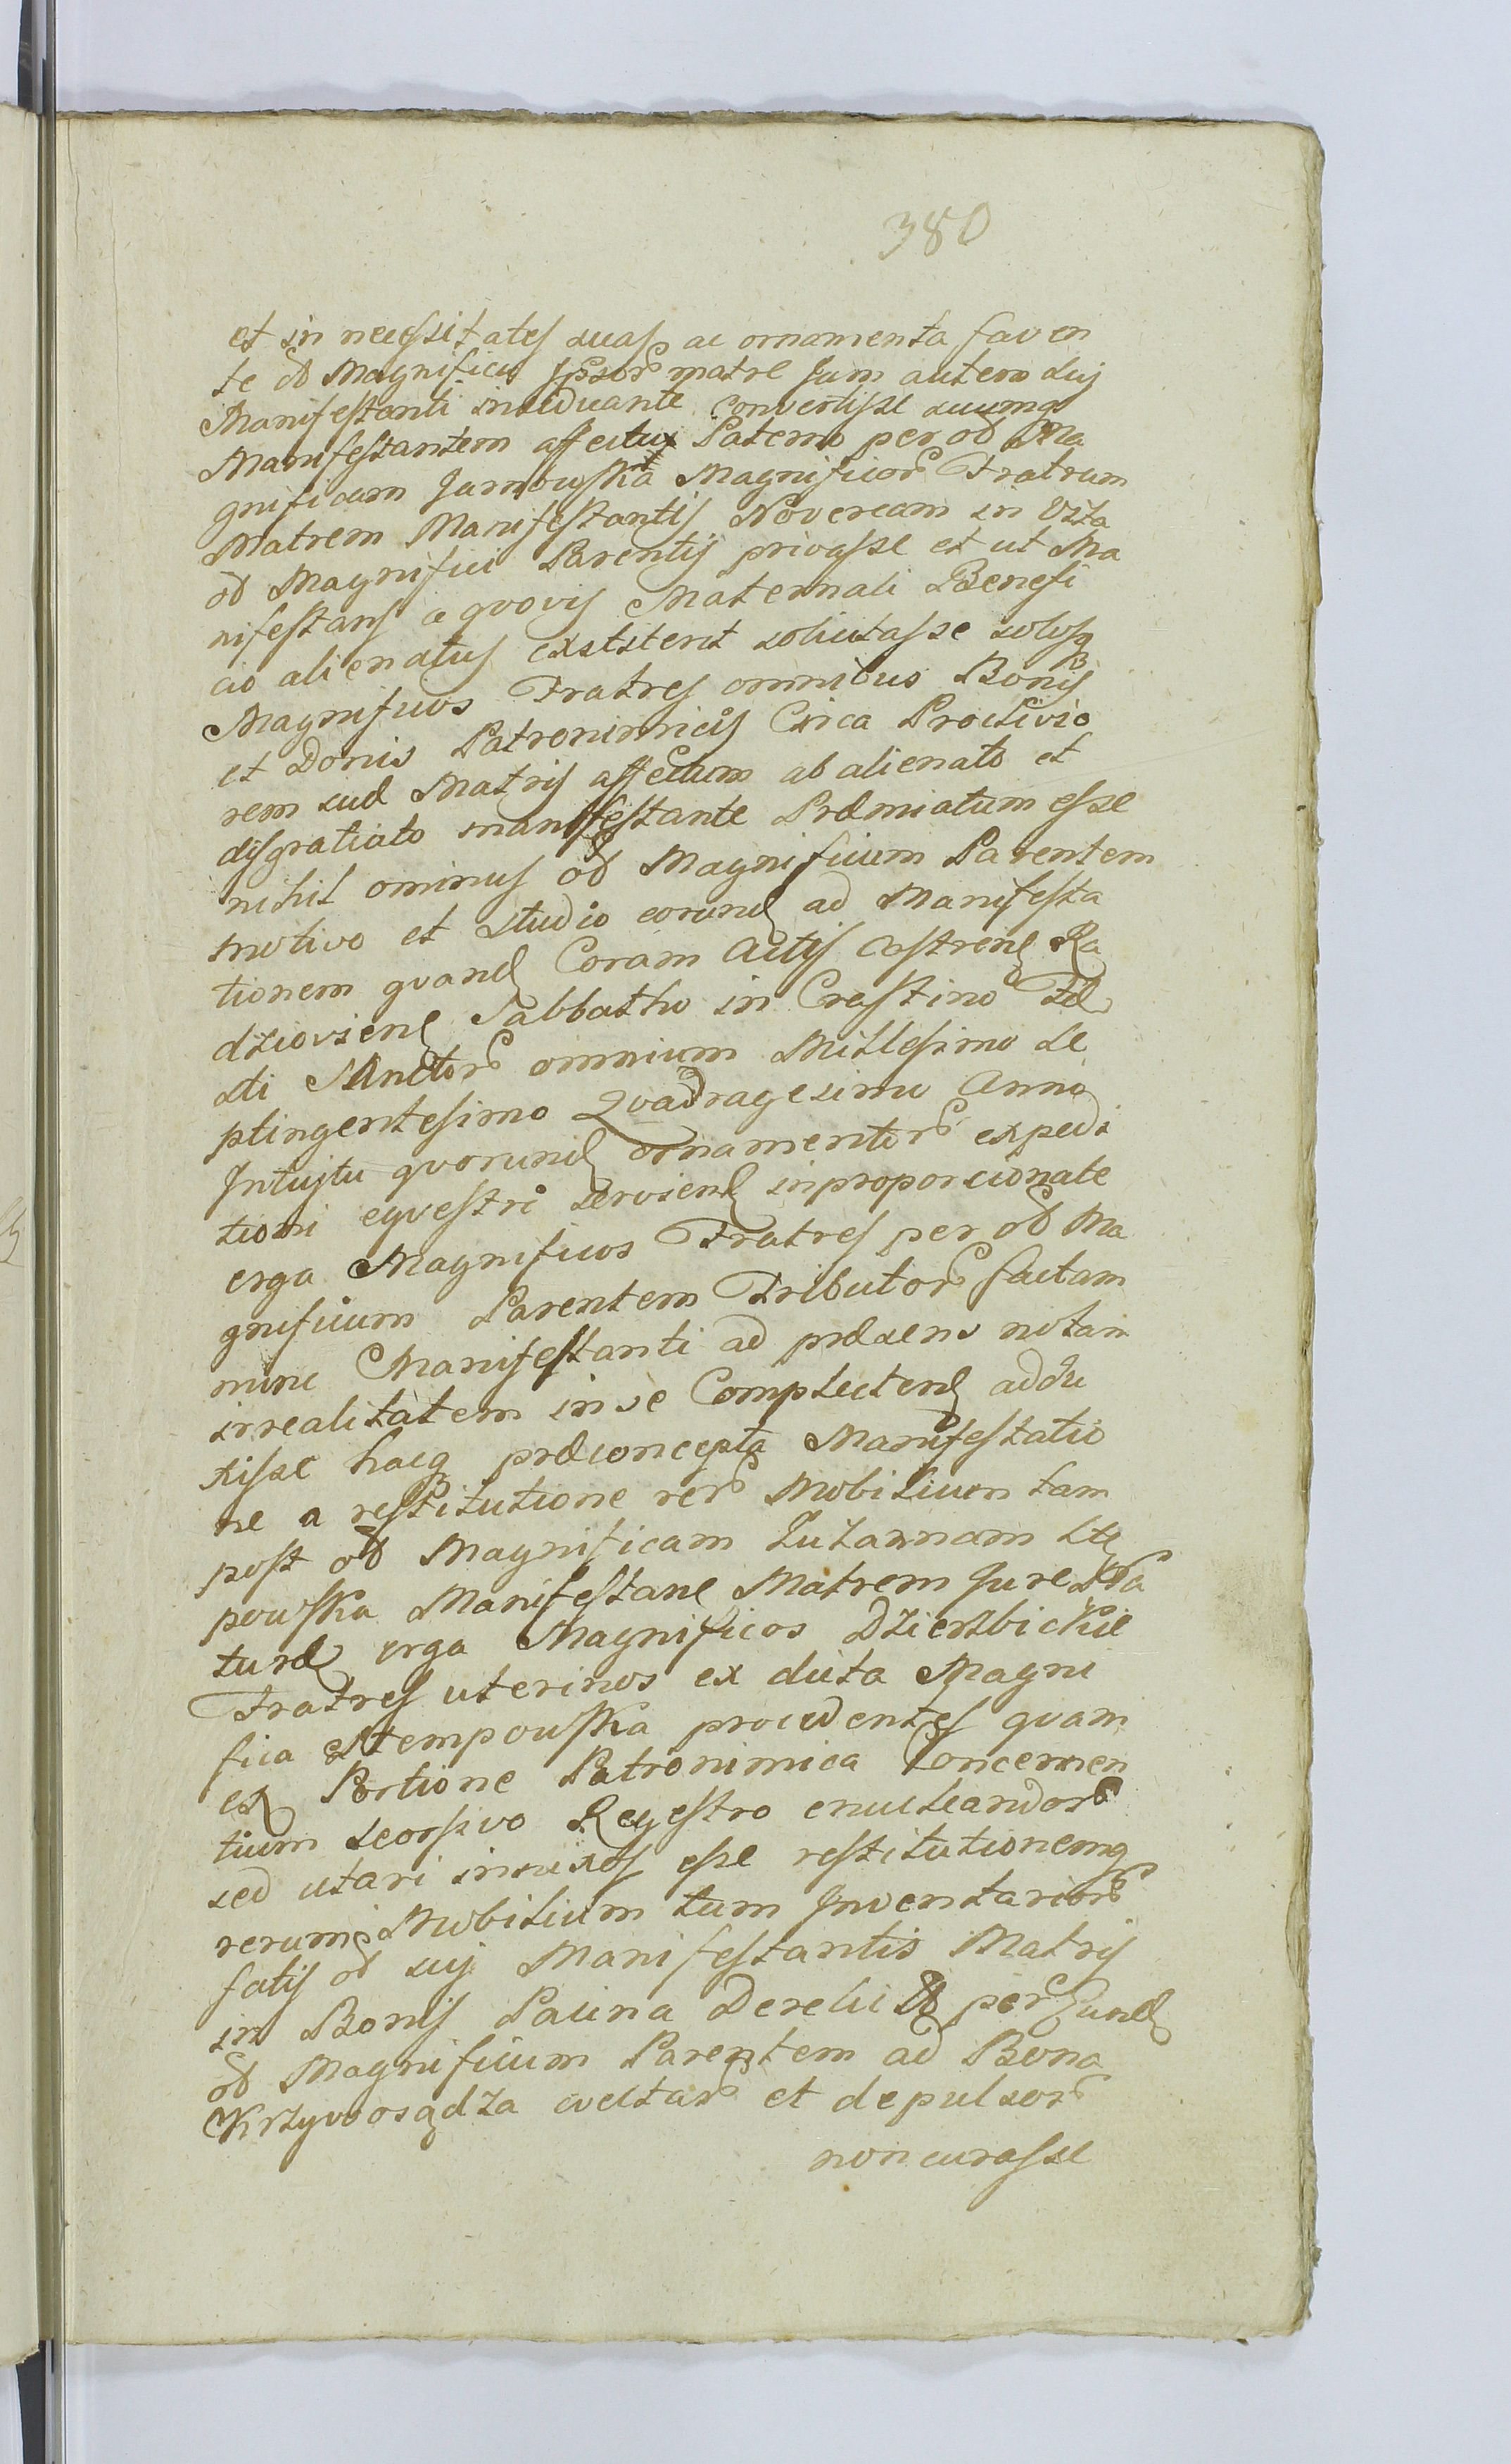 380
et in necessitates suasq ac ornamenta faven
te ol Magnifica Ipsor matre Jam autem sui
Manifestanti insidiante convertisse suumq
Manifestantem affectu Paterno per ol Ma
gnificam Jarnowska Magnificor Fratrum
Matrem Manifestantis Novercam in Vita
ol Magnifici Parentis privasse et ut Ma
nifestans a quovis Maternali Benefi
cio alienatus exstiterit solicitasse solosq
Magnificos Fratres omnibus Bonis
et Donis Patronimicis Circa Proclivio
rem suæ Matris affectum ab alienato et
disgratiato manifestante Præmiatum esse
nihil ominus ol Magnificum Parentem
motivo et studio eorund ad Manifesta
tionem quand Coram Actis Castren Ra
dziovien Sabbatho in Crastino Fe
sti Sanctor omnium Millesimo Se
ptingentesimo Quadragesimo Anno
Intuitu quorund ornamentor expedi
tioni equestri servien inproporcionate
erga Magnificos Fratres per ol Ma
gnificum Parentem Tributor factam
nunc Manifestanti ad præsens notam
irrealitatem in se Complecten addu
xisse hacq præconcepta Manifestatio
ne a restitutione rer Mobilium tam
post ol Magnificam Zuzannam Stę
powska Manifestan Matrem Jure Na
turæ erga Magnificos Dzierzbickie
Fratres uterinos ex dicta Magni
fica Stempowska procedentes quam
ex Portione Patronimica Concernen
tium seorsivo Regestro enucleandor
sed utari insuxos esse restitutionemq
rerum Mobilium tum Inventarior
fatis ol sui Manifestantis Matris
in Bonis Pacina Derelict per Eund
ol Magnificum Parentem ad Bona
Krzywosądza avectar et depulsor
non curasse